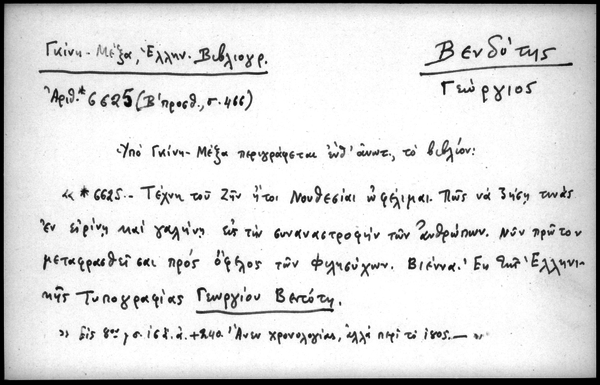 Γκίνη-Μέξα, Ἑλλην. Βιβλιογρ.
Βενδότης
Γεώργιος
Ἀριθ. *6625 (Β' προσθ., σ. 466)
Ὑπὸ Γκίνη-Μέξα περιγράφεται ἐνθ' ἀνωτ., τὸ βιβλίον:
« *6625.- Τέχνη τοῦ Ζῆν ἤτοι Νουθεσίαι ὠφέλιμαι. Πῶς νὰ ζήσῃ τινὰς
ἐν εἰρίνη καὶ γαλήνῃ εἰς τὴν συναναστροφὴν τῶν ἀνθρώπων. Νῦν πρῶτον
μεταφρασθεῖσαι πρὸς ὄφελος τῶν φιλησύχων. Βιέννα. Ἐκ τῆς Ἑλληνι-
κῆς Τυπογραφίας Γεωργίου Βεντότη.
» Εἰς 8ον σ. ἀ. +240. Ἄνευ χρονολογίας, ἀλλὰ περὶ τὸ 180ς.— »